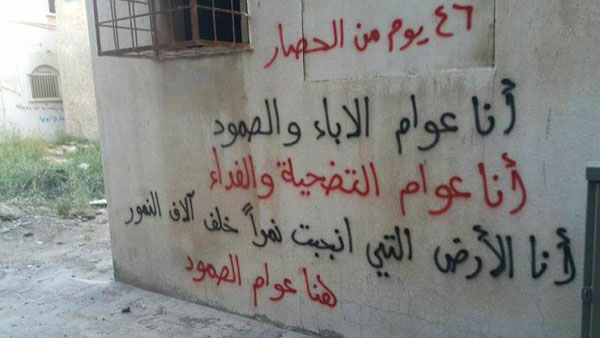 ٤٦ يوم من الحصار
أنا عوام الاباء والصمود
أنا عوام التضحية والفداء
أنا الأرض التي انجبت نمراً خلف آلاف النمور
هنا عوام الصمود